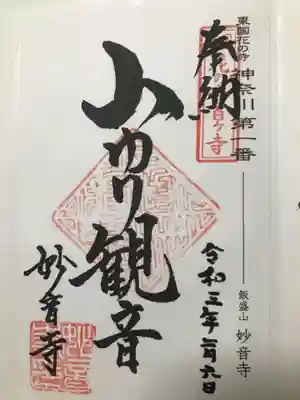 東国花の寺 神奈川第一番
飯盛山 妙音寺
奉納
山ゆり観音
令和三年二月九日
妙音寺